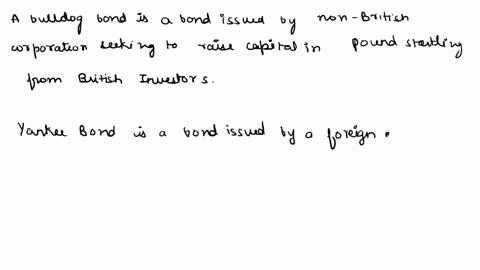 A bulldog bond is a bond issued by non-British
corporation seeking to raise capital in pound startling
from British Investors.
Yankee Bond is a bond issued by a foreign